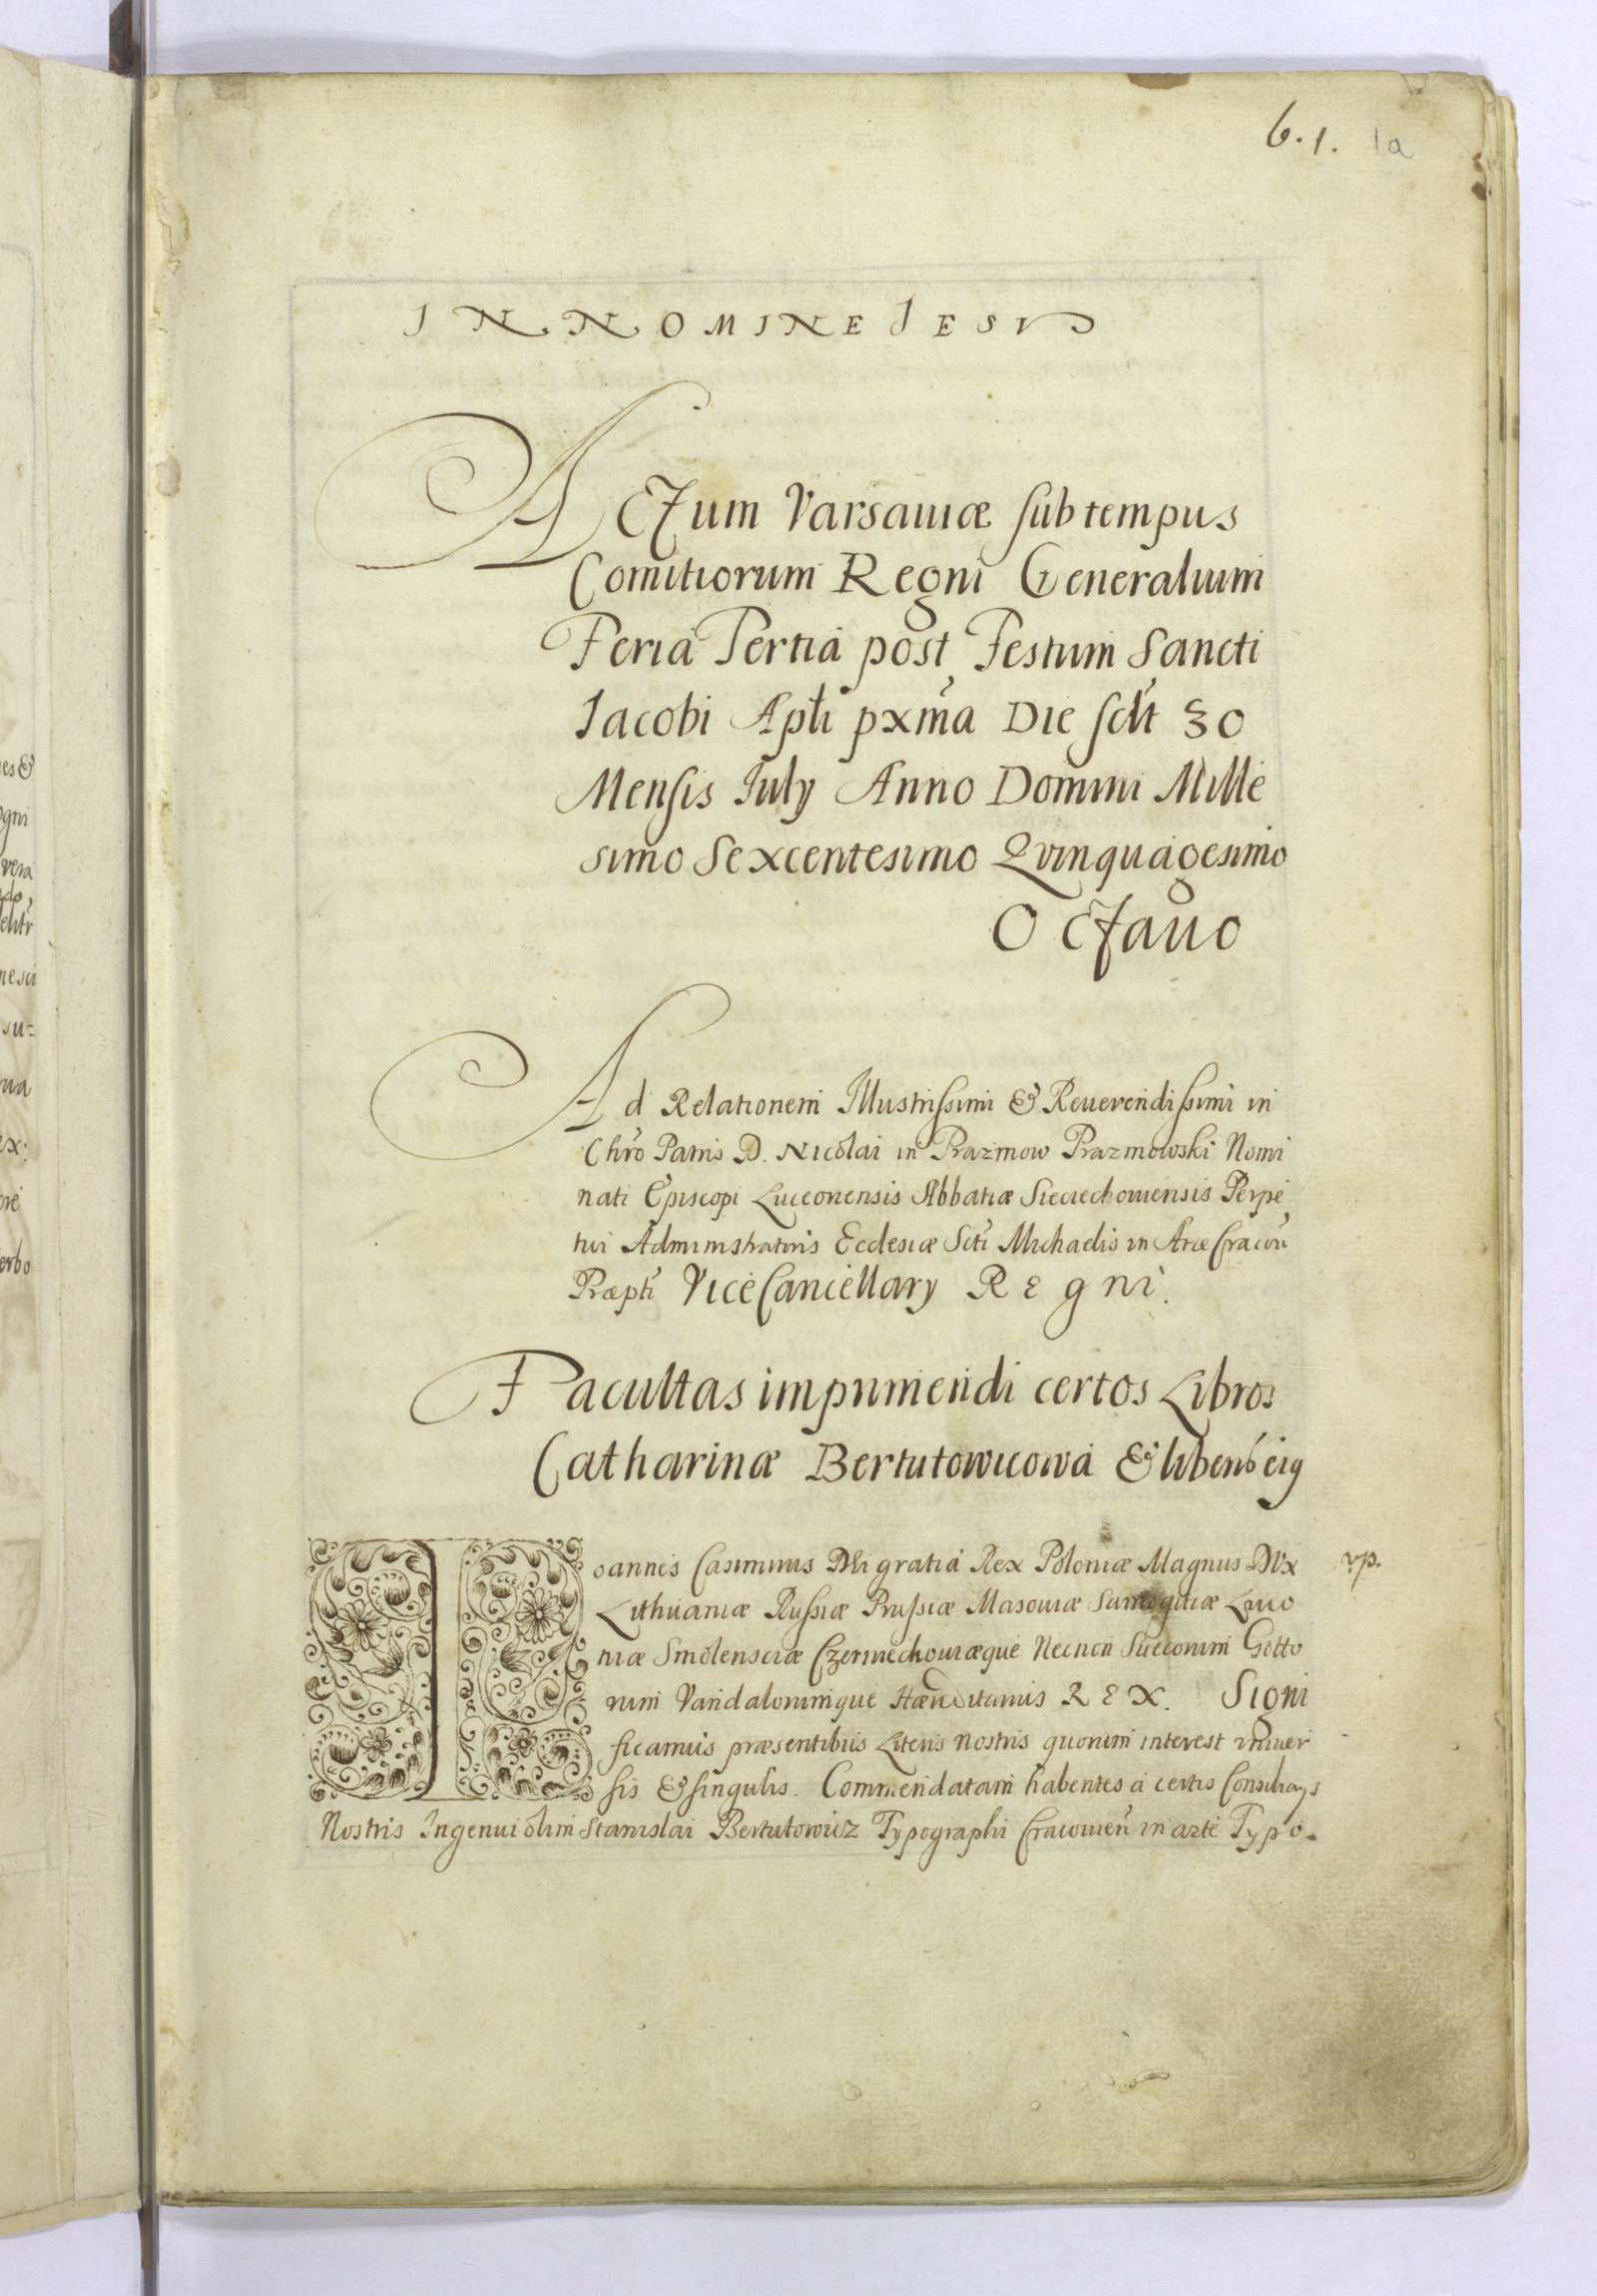 6.1. 1a
IN NOMINE JESV
ACtum Varsaviæ sub tempus
Comitiorum Regni Generalium
Feria Tertia post Festum Sancti
Jacobi Apli pxma Die sclt 30
Mensis July Anno Domini Mille
simo Sexcentesimo Qvinquagesimo
OCtauo
Ad Relationem Illustrissimi & Reuerendissimi in
Chro Patris D. Nicolai in Prazmow Prazmowski Nomi
nati Episcopi Luceonensis Abbatiæ Sieciechouiensis Perpe
tui Administratoris Ecclesiæ Scti Michaelis in Arce Cracou
Præpti ViceCancellary Regni.
Facultas imprimendi certos Libros
Catharinæ Bertutowicowa & liberis eig
Ioannes Casimirus Dei gratia Rex Poloniæ Magnus Dvx
Lithuaniæ Russiæ Prussiæ Masouiæ Samogitiæ Liuo
niæ Smolensciæ Czerniechouiæque Necnon Sueconum Gotto
rum Vandalorumque Hæreditarius REX. Signi
ficamus præsentibus Literis nostris quorum interest vniuer
sis & singulis. Commendatam habentes a certis Consiliarys
Nostris Ingenui olim Stanislai Bertutowicz Typographi Cracouien in arte Typo.
es &
ogni
vera
ndo,
nesci
su=
ex:
erbo